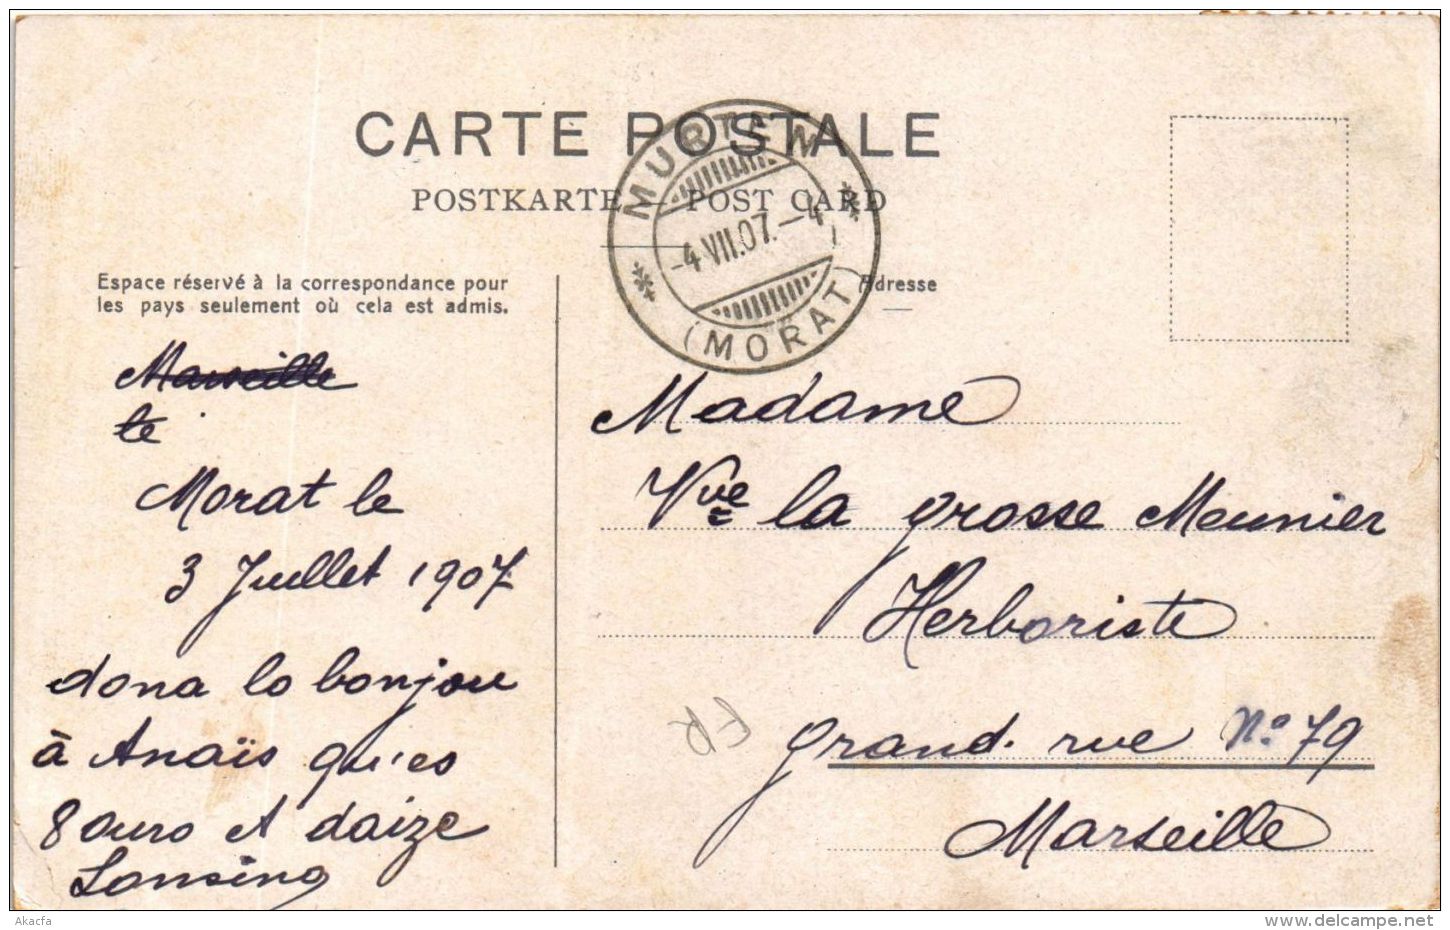 CARTE POSTALE
POSTKARTE — POST CARD
MURTEN
-4.VII.07.-4
(MORAT)
Espace réservé à la correspondance pour
les pays seulement où cela est admis.
Adresse
Marseille
le
Morat le
3 Juillet 1907
dona lo bonjou
à Anaïs qu'es
8 ouro et daize
Madame
Vve la grosse Meunier
Herboriste
grand. rue No 79
Marseille
Akacfa
delcampe.net